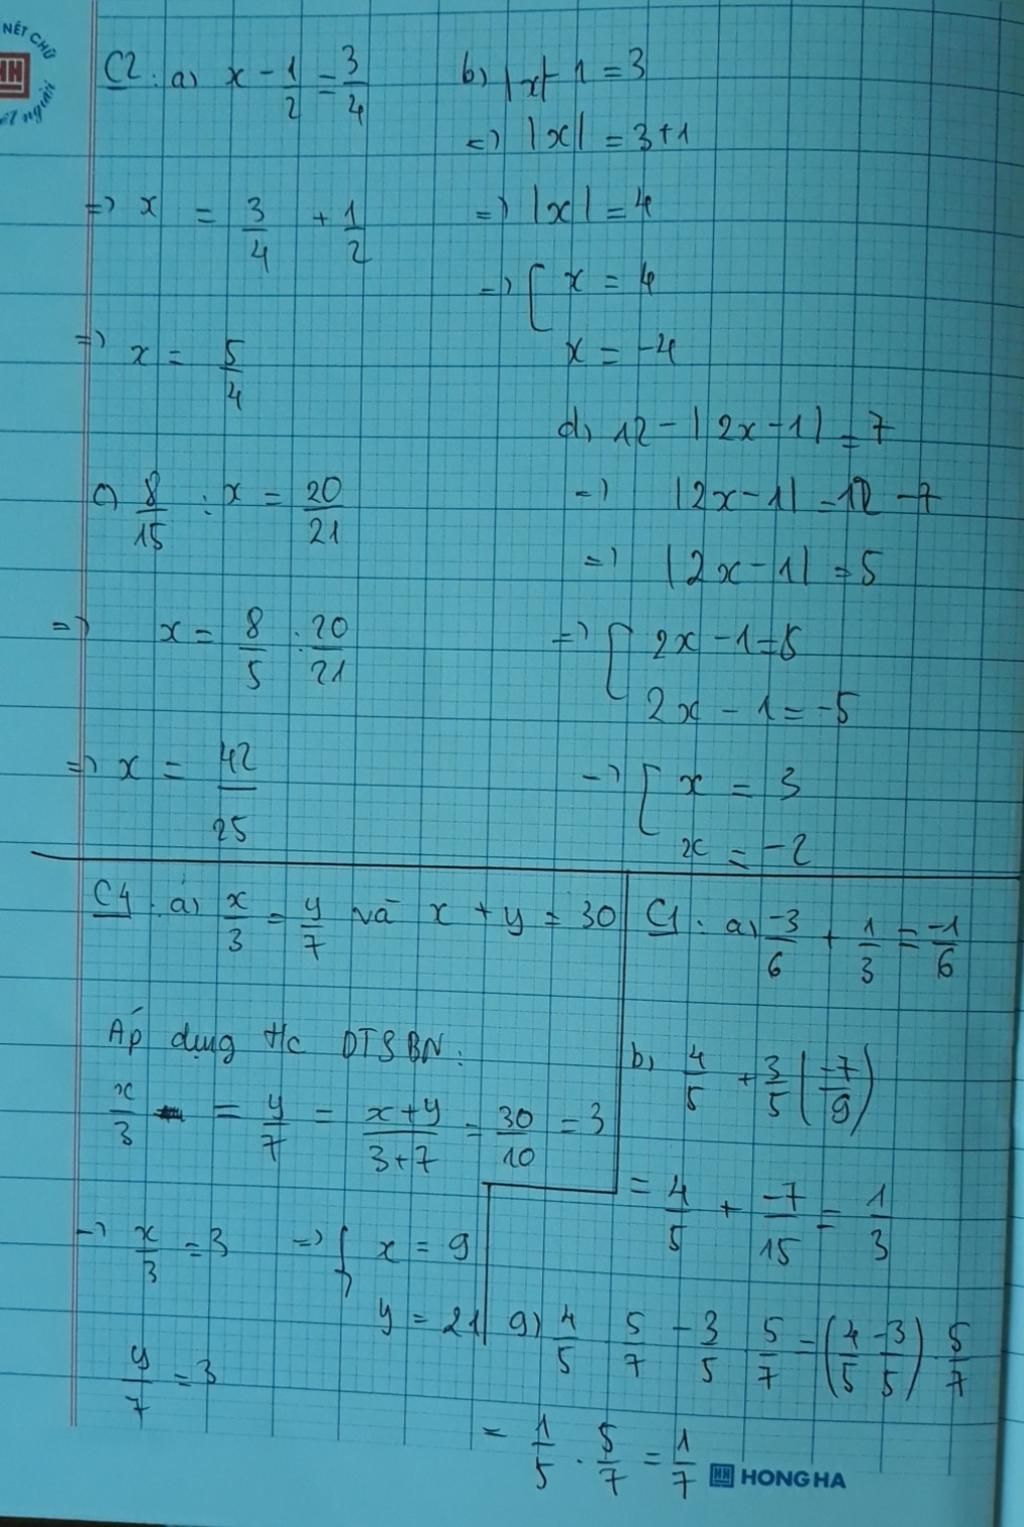 NÉT CHỮ
HH
nết người
C2: a) x - 1/2 = 3/4
=> x = 3/4 + 1/2
=> x = 5/4
b) |x| - 1 = 3
=> |x| = 3+1
=> |x| = 4
=> [ x = 4
x = -4
c) 8/15 : x = 20/21
=> x = 8/5 . 20/21
=> x = 42/25
d) 12 - |2x - 1| = 7
=> |2x - 1| = 12 - 7
=> |2x - 1| = 5
=> [ 2x - 1 = 5
2x - 1 = -5
=> [ x = 3
x = -2
C4: a) x/3 = y/7 và x + y = 30
Áp dụng t/c DTSBN:
x/3 = y/7 = x+y/3+7 = 30/10 = 3
=> x/3 = 3 => { x = 9
y/7 = 3 y = 21
C1: a) -3/6 + 1/3 = -1/6
b) 4/5 + 3/5 (-7/9)
= 4/5 + -7/15 = 1/3
g) 4/5 5/7 - 3/5 5/7 = (4/5 - 3/5) 5/7
= 1/5 . 5/7 = 1/7
HH HONG HA